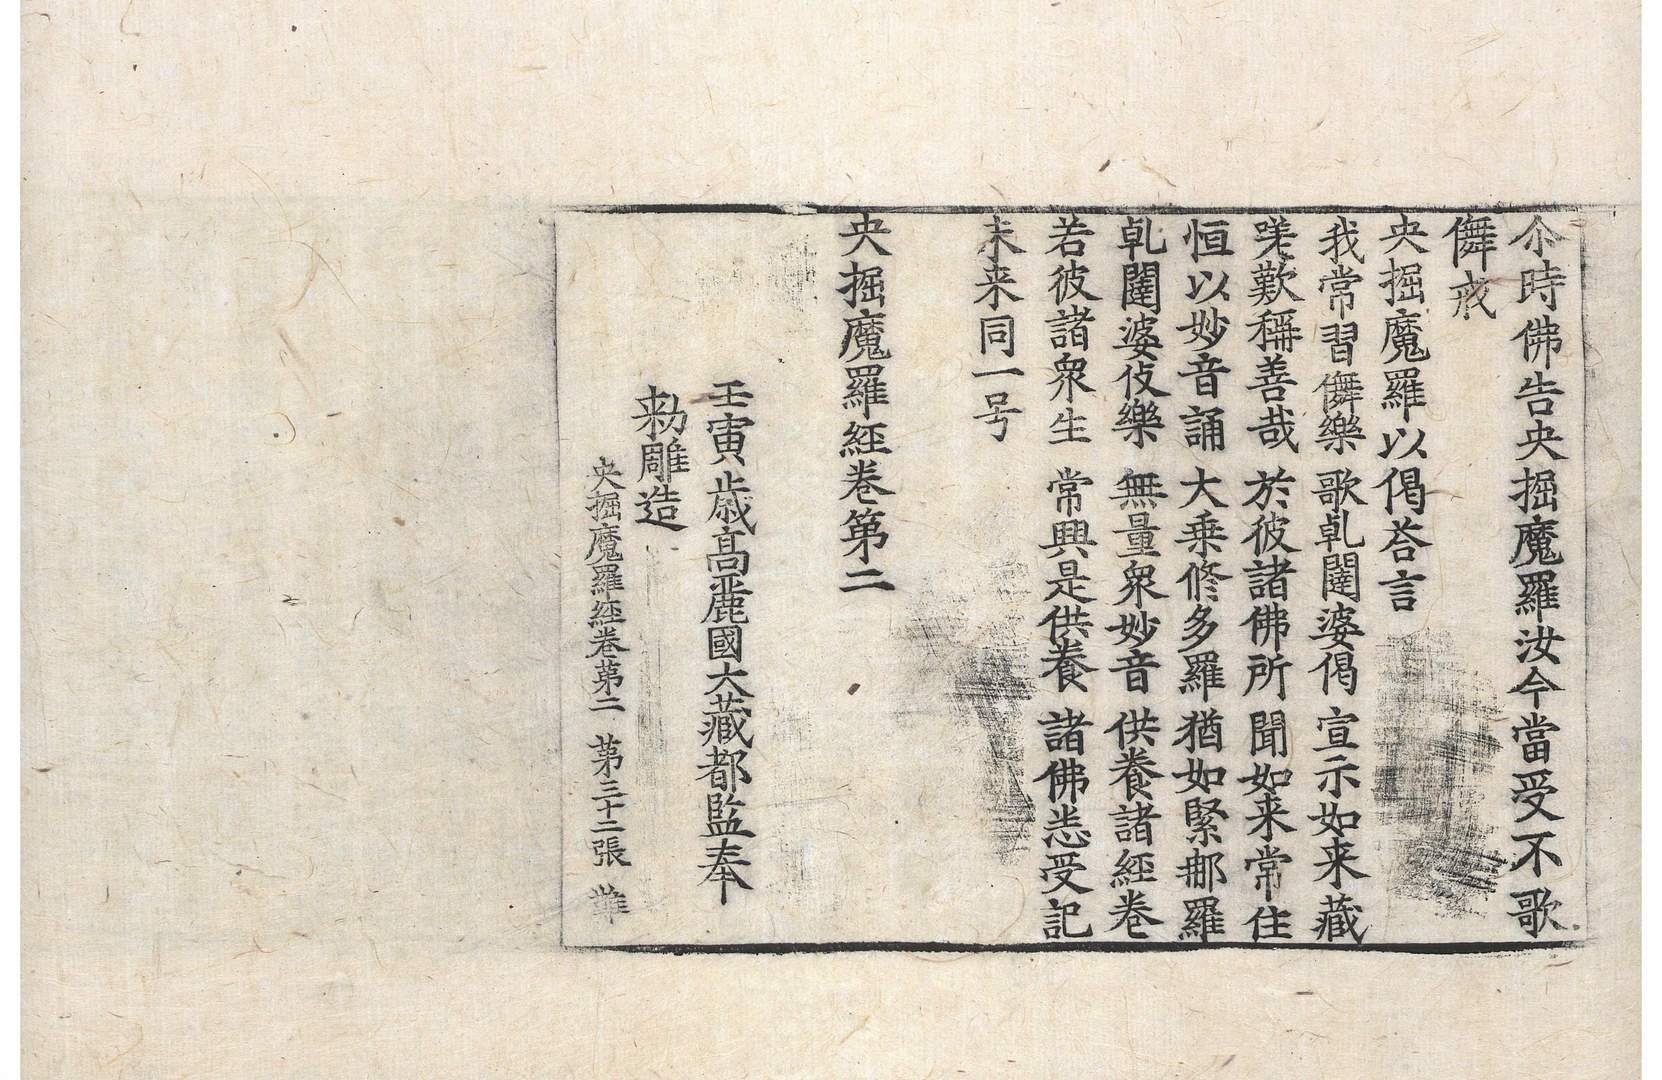 尒時佛告央掘魔羅汝今當受不歌
儛戒
央掘魔羅以偈荅言
我常習儛樂 歌乹闥婆偈 宣示如来藏
嗟歎稱善哉 於彼諸佛所 聞如来常住
恒以妙音誦 大乗修多羅 猶如緊那羅
乹闥婆伎樂 無量衆妙音 供養諸經卷
若彼諸衆生 常興是供養 諸佛悉受記
未来同一号
央掘魔羅經卷第二
壬寅歳高麗國大藏都監奉
勑雕造
央掘魔羅経卷苐二 苐三十二張